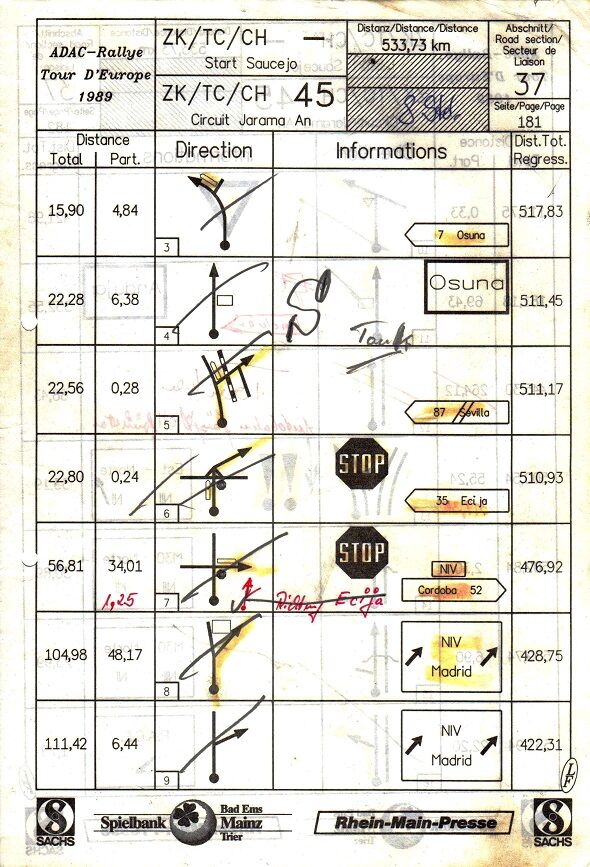 ADAC-Rallye
Tour D'Europe
1989
ZK/TC/CH —
Start Saucejo
ZK/TC/CH 45
Circuit Jarama An
Distanz/Distance/Distance
533,73 km
8 Std.
Abschnitt/
Road section/
Secteur de
Liaison
37
Seite/Page/Page
181
Distance
Total Part.
Direction
Informations
Dist.Tot.
Regress.
15,90 4,84 3 7 Osuna 517,83
22,28 6,38 4 Osuna 511,45
Tank
22,56 0,28 5 87 Sevilla 511,17
22,80 0,24 6 STOP 35 Ecija 510,93
56,81 34,01 7 STOP NIV Cordoba 52 476,92
1,25 Richtung Ecija
104,98 48,17 8 NIV Madrid 428,75
111,42 6,44 9 NIV Madrid 422,31
L/F
SACHS
Spielbank Bad Ems Mainz Trier
Rhein-Main-Presse
SACHS